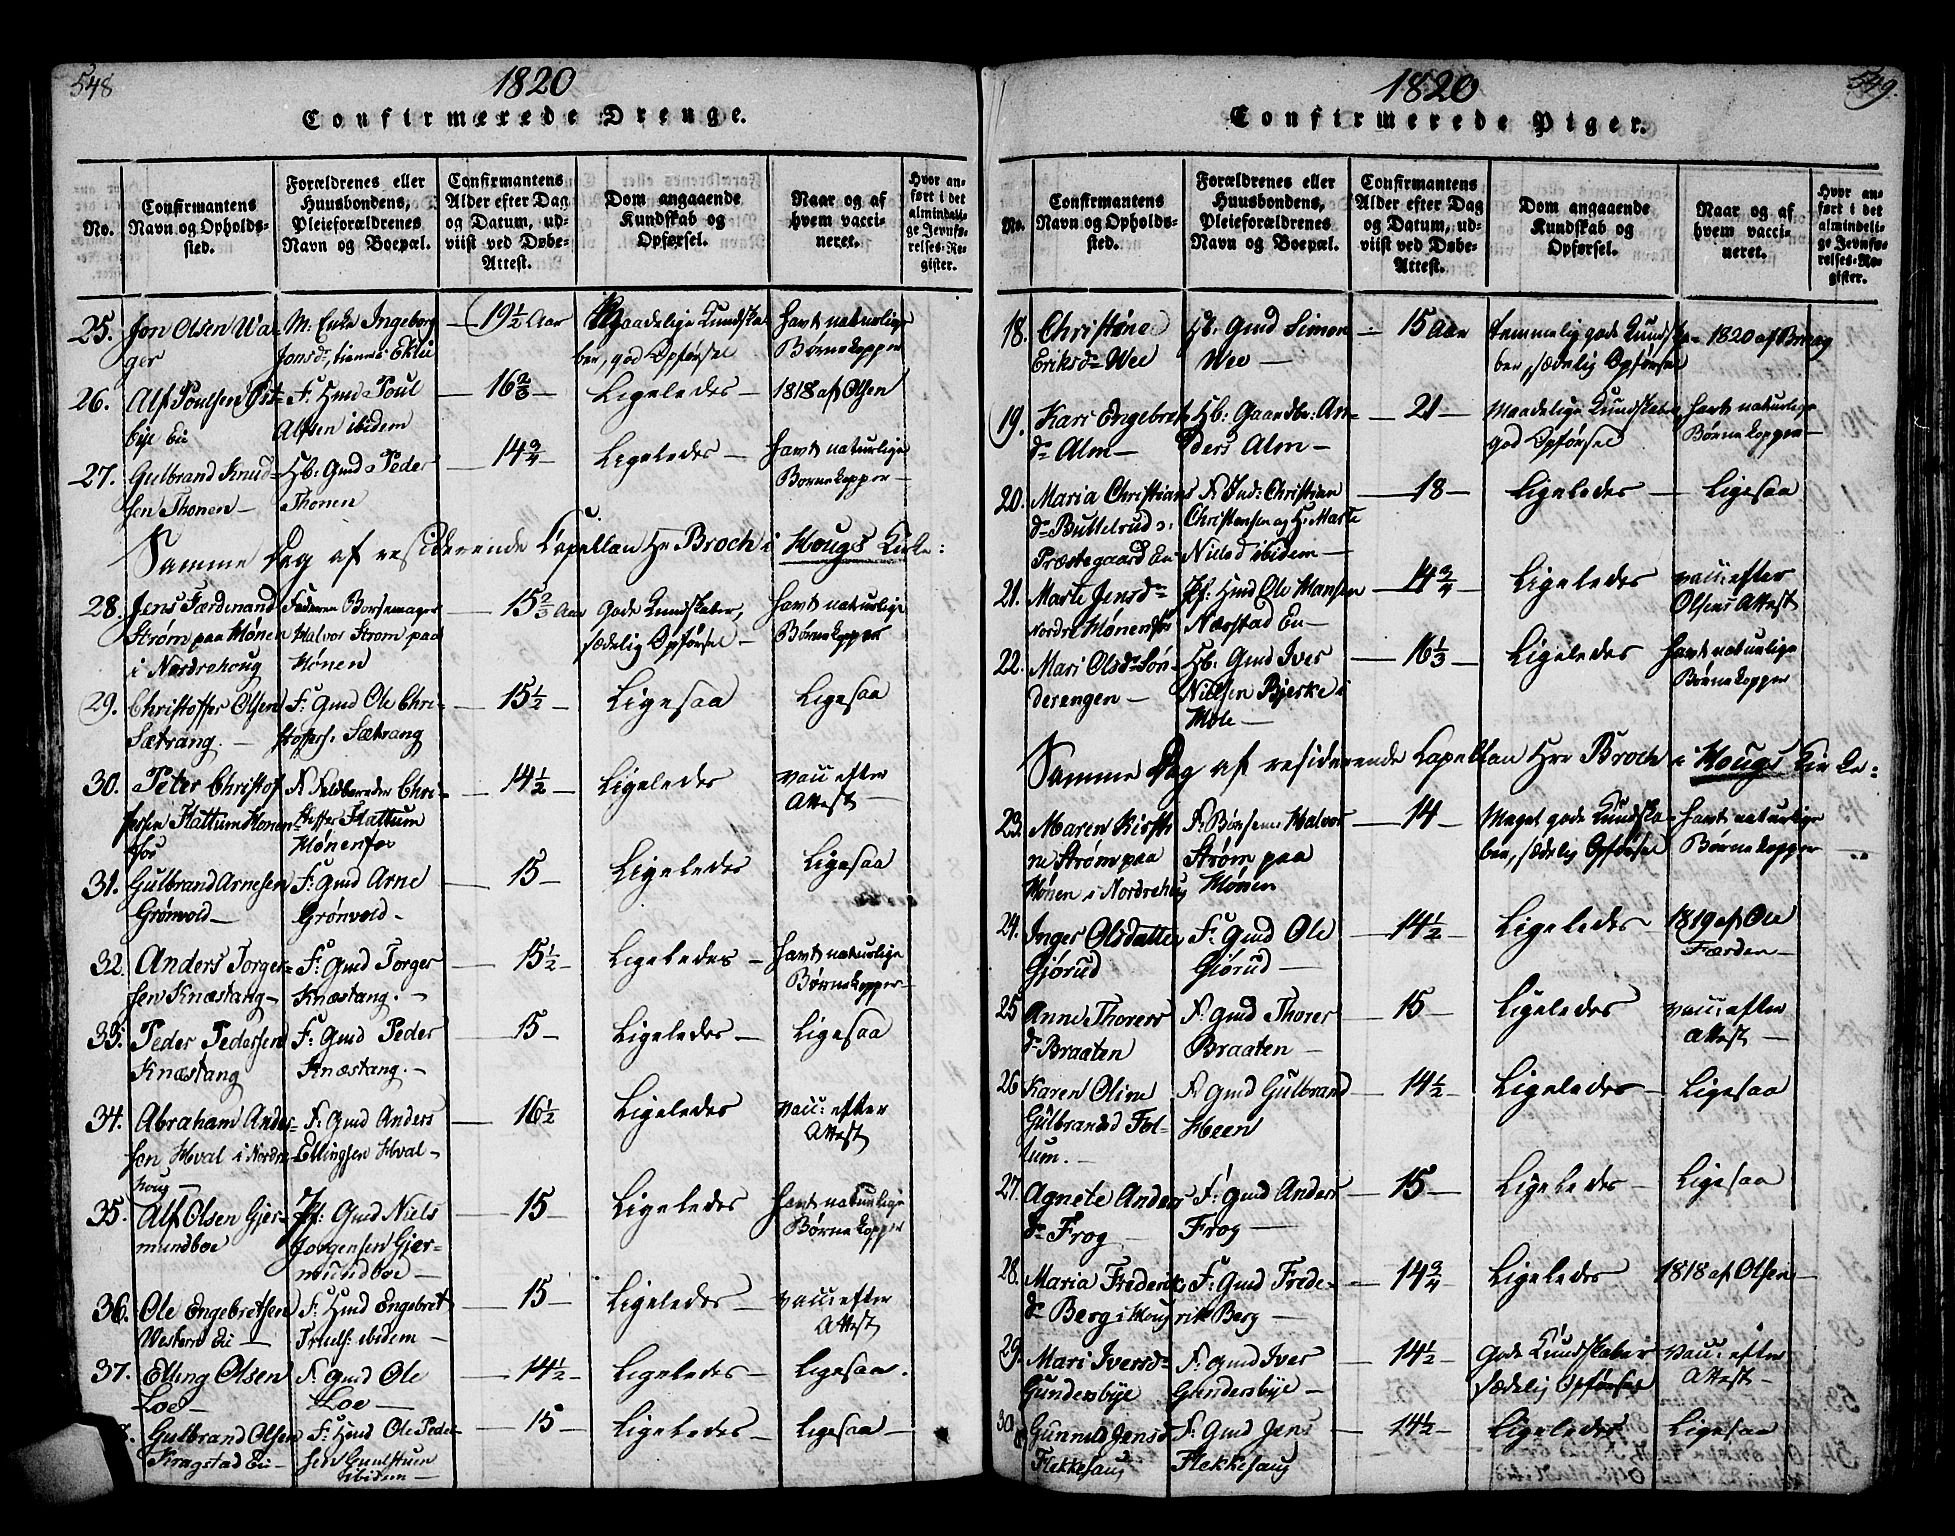 548
1820
Confirmerede Drenge.
No.
Confirmantens
Navn og Opholds-
sted.
Forældrenes eller
Huusbondens,
Pleieforældrenes
Navn og Boepæl.
Confirmantens
Alder efter Dag
og Datum, ud-
viist ved Døbe-
Attest.
Dom angaaende
Kundskab og
Opførsel.
Naar og af
hvem vacci-
neret.
Hvor an-
ført i det
almindeli-
ge Jevnfø-
relses-Re-
gister.
25.
Jon Olsen Wa-
ger
M: Enke Ingeborg
Jonsd:, tienes i Eklie
19½ Aar
Maadelige Kundska-
ber, god Opførsel
havt naturlige
Børnekopper
26.
Alf Poulsen Øst-
bye Eie
F: Hmd Poul
Alfsen ibidem
16⅔
Ligeledes
1818 af Olsen
27.
Gulbrand Knud-
sen Thonen
Hb: Gmd Peder
Thonen
14¾
Ligeledes
havt naturlige
Børnekopper
Samme Dag af residerende Capellan Hr Broch i Hougs Kirke:
28.
Jens Færdinand
Strøm paa Hønen
i Nordrehoug
Faderen Børsemager
Halvor Strøm paa
Hønen
15⅔ Aar
Gode Kundskaber,
sædelig Opførsel
havt naturlige
Børnekopper
29.
Christoffer Olsen
Sætrang.
F: Gmd Ole Chri-
stoffers: Sætrang
15½
Ligesaa
Ligesaa
30.
Peter Christof-
fersen Flattum Hønen-
fos
F. Feldbereder Chri-
stoffer Flattum
Hønenfos
14½
Ligeledes
vacc: efter
Attest
31.
Gulbrand Arnesen
Grønvold
F: Gmd Arne
Grønvold
15
Ligeledes
Ligesaa
32.
Anders Torger-
sen Knæstang
F: Gmd Torger
Knæstang.
15½
Ligeledes
havt naturlige
Børnekopper
33.
Peder Pedersen
Knæstang
F: Gmd Peder
Knæstang.
15
Ligeledes
Ligesaa
34.
Abraham Ander-
sen Hval i Nordre-
houg
F. Gmd Anders
Ellingsen Hval
16½
Ligeledes
vacc: efter
Attest
35.
Alf Olsen Gjer-
mundboe
Pf: Gmd Niels
Jorgensen Gjer-
mundboe
15
Ligeledes
havt naturlige
Børnekopper
36.
Ole Engebretsen
Western Eie
F: Hmd Engebret
Truels: ibidem
15
Ligeledes
vacc: efter
Attest
37.
Elling Olsen
Loe
F. Gmd Ole
Loe
14½
Ligeledes
Ligesaa.
8.
Gulbrand Olsen
Kragstad Eie
F: Hmd Ole Peder-
sen
ibidem
15
Ligeledes
Ligesaa
549.
1820
Confirmerede Piger.
No.
Confirmantens
Navn og Opholds-
sted.
Forældrenes eller
Huusbondens,
Pleieforældrenes
Navn og Boepæl.
Confirmantens
Alder efter Dag
og Datum, ud-
viist ved Døbe-
Attest.
Dom angaaende
Kundskab og
Opførsel.
Naar og af
hvem vacci-
neret.
Hvor an-
ført i det
almindeli-
ge Jevnfø-
relses-Re-
gister.
18.
Christine
Eriksd: Wee
Hb: Gmd Simon
Wee
15 Aar
Temmelig gode Kundska-
ber, sædelig Opførsel
1820 af
19.
Kari Engebrets
d: Alm
Hb: Gaardbr: An-
ders Alm
21
Maadelige Kundskaber
god Opførsel
havt naturlige
Børnekopper
20.
Maria Christians
d: Buttelrud
Præstegaard Eie
F. Ind: Christian
Christensen og H: Marte
Nilsd ibidem
18
Ligeledes
Ligesaa
21.
Marte Jensd:
Nordre Hønenfos
Pf: Hmd Ole Hansen
Nærstad Eie
14¾
Ligeledes
vacc: efter
Olsens Attest
22.
Mari Olsd: Søn-
derengen
Hb: Gmd Iver
Nielsen Bjerke i
Hole
16⅓
Ligeledes
havt naturlige
Børnekopper
Samme Dag af residerende Capellan Hrr Broch i Hougs Kirke:
23.
Maren Kirsti-
ne Strøm paa
Hønen i Nordrehoug
F. Børsem: Halvor
Strøm paa
Hønen
14
Meget gode Kundska-
ber, sædelig Opførsel
havt naturlige
Børnekopper
24.
Inger Olsdatter
Gjørud
F: Gmd Ole
Gjørud
14½
Ligeledes
1819 af Ole
Færden
25
Anne Thorers
d: Braaten
F. Gmd Thorer
Braaten
15
Ligeledes
vacc: efter
Attest
26
Karen Oline
Gulbrandsd Fol-
tum.
F. Gmd Gulbrand
Heen
14½
Ligeledes
Ligesaa
27.
Agnete Anders
d: Frog
F: Gmd Anders
Frog
15
Ligeledes
Ligesaa
28.
Maria Frederiks
d: Berg i Houg
F: Gmd Frede-
rik Berg
14¾
Ligeledes
1818 af Olsen
29.
Mari Iversd:
Gundersbye
F. Gmd Iver
Gundersbye
14½
Gode Kundskaber
sædelig Opførsel
vacc: efter
Attest
30
Gunnild Jensd
Flekkesaug
F. Gmd Jens
Flekkesaug
14½
Ligeledes
Ligesaa